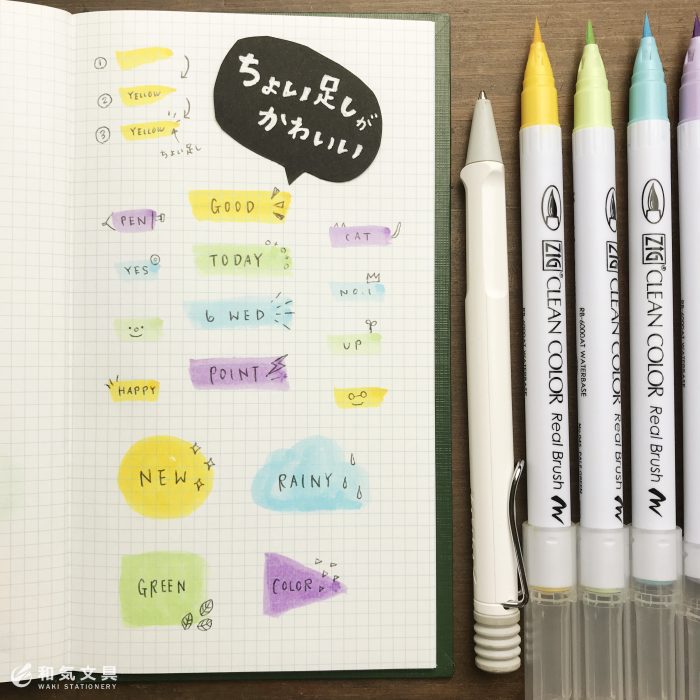 ①
② YELLOW
③ YELLOW
ちょい足し
ちょい足しが
かわいい
PEN
YES
HAPPY
GOOD
TODAY
6 WED
POINT
CAT
NO.1
UP
NEW
RAINY
GREEN
COLOR
ZIG CLEAN COLOR Real Brush
RB-6000AT WATERBASE
ZIG CLEAN COLOR Real Brush
RB-6000AT WATERBASE
ZIG CLEAN COLOR Real Brush
和気文具
WAKI STATIONERY